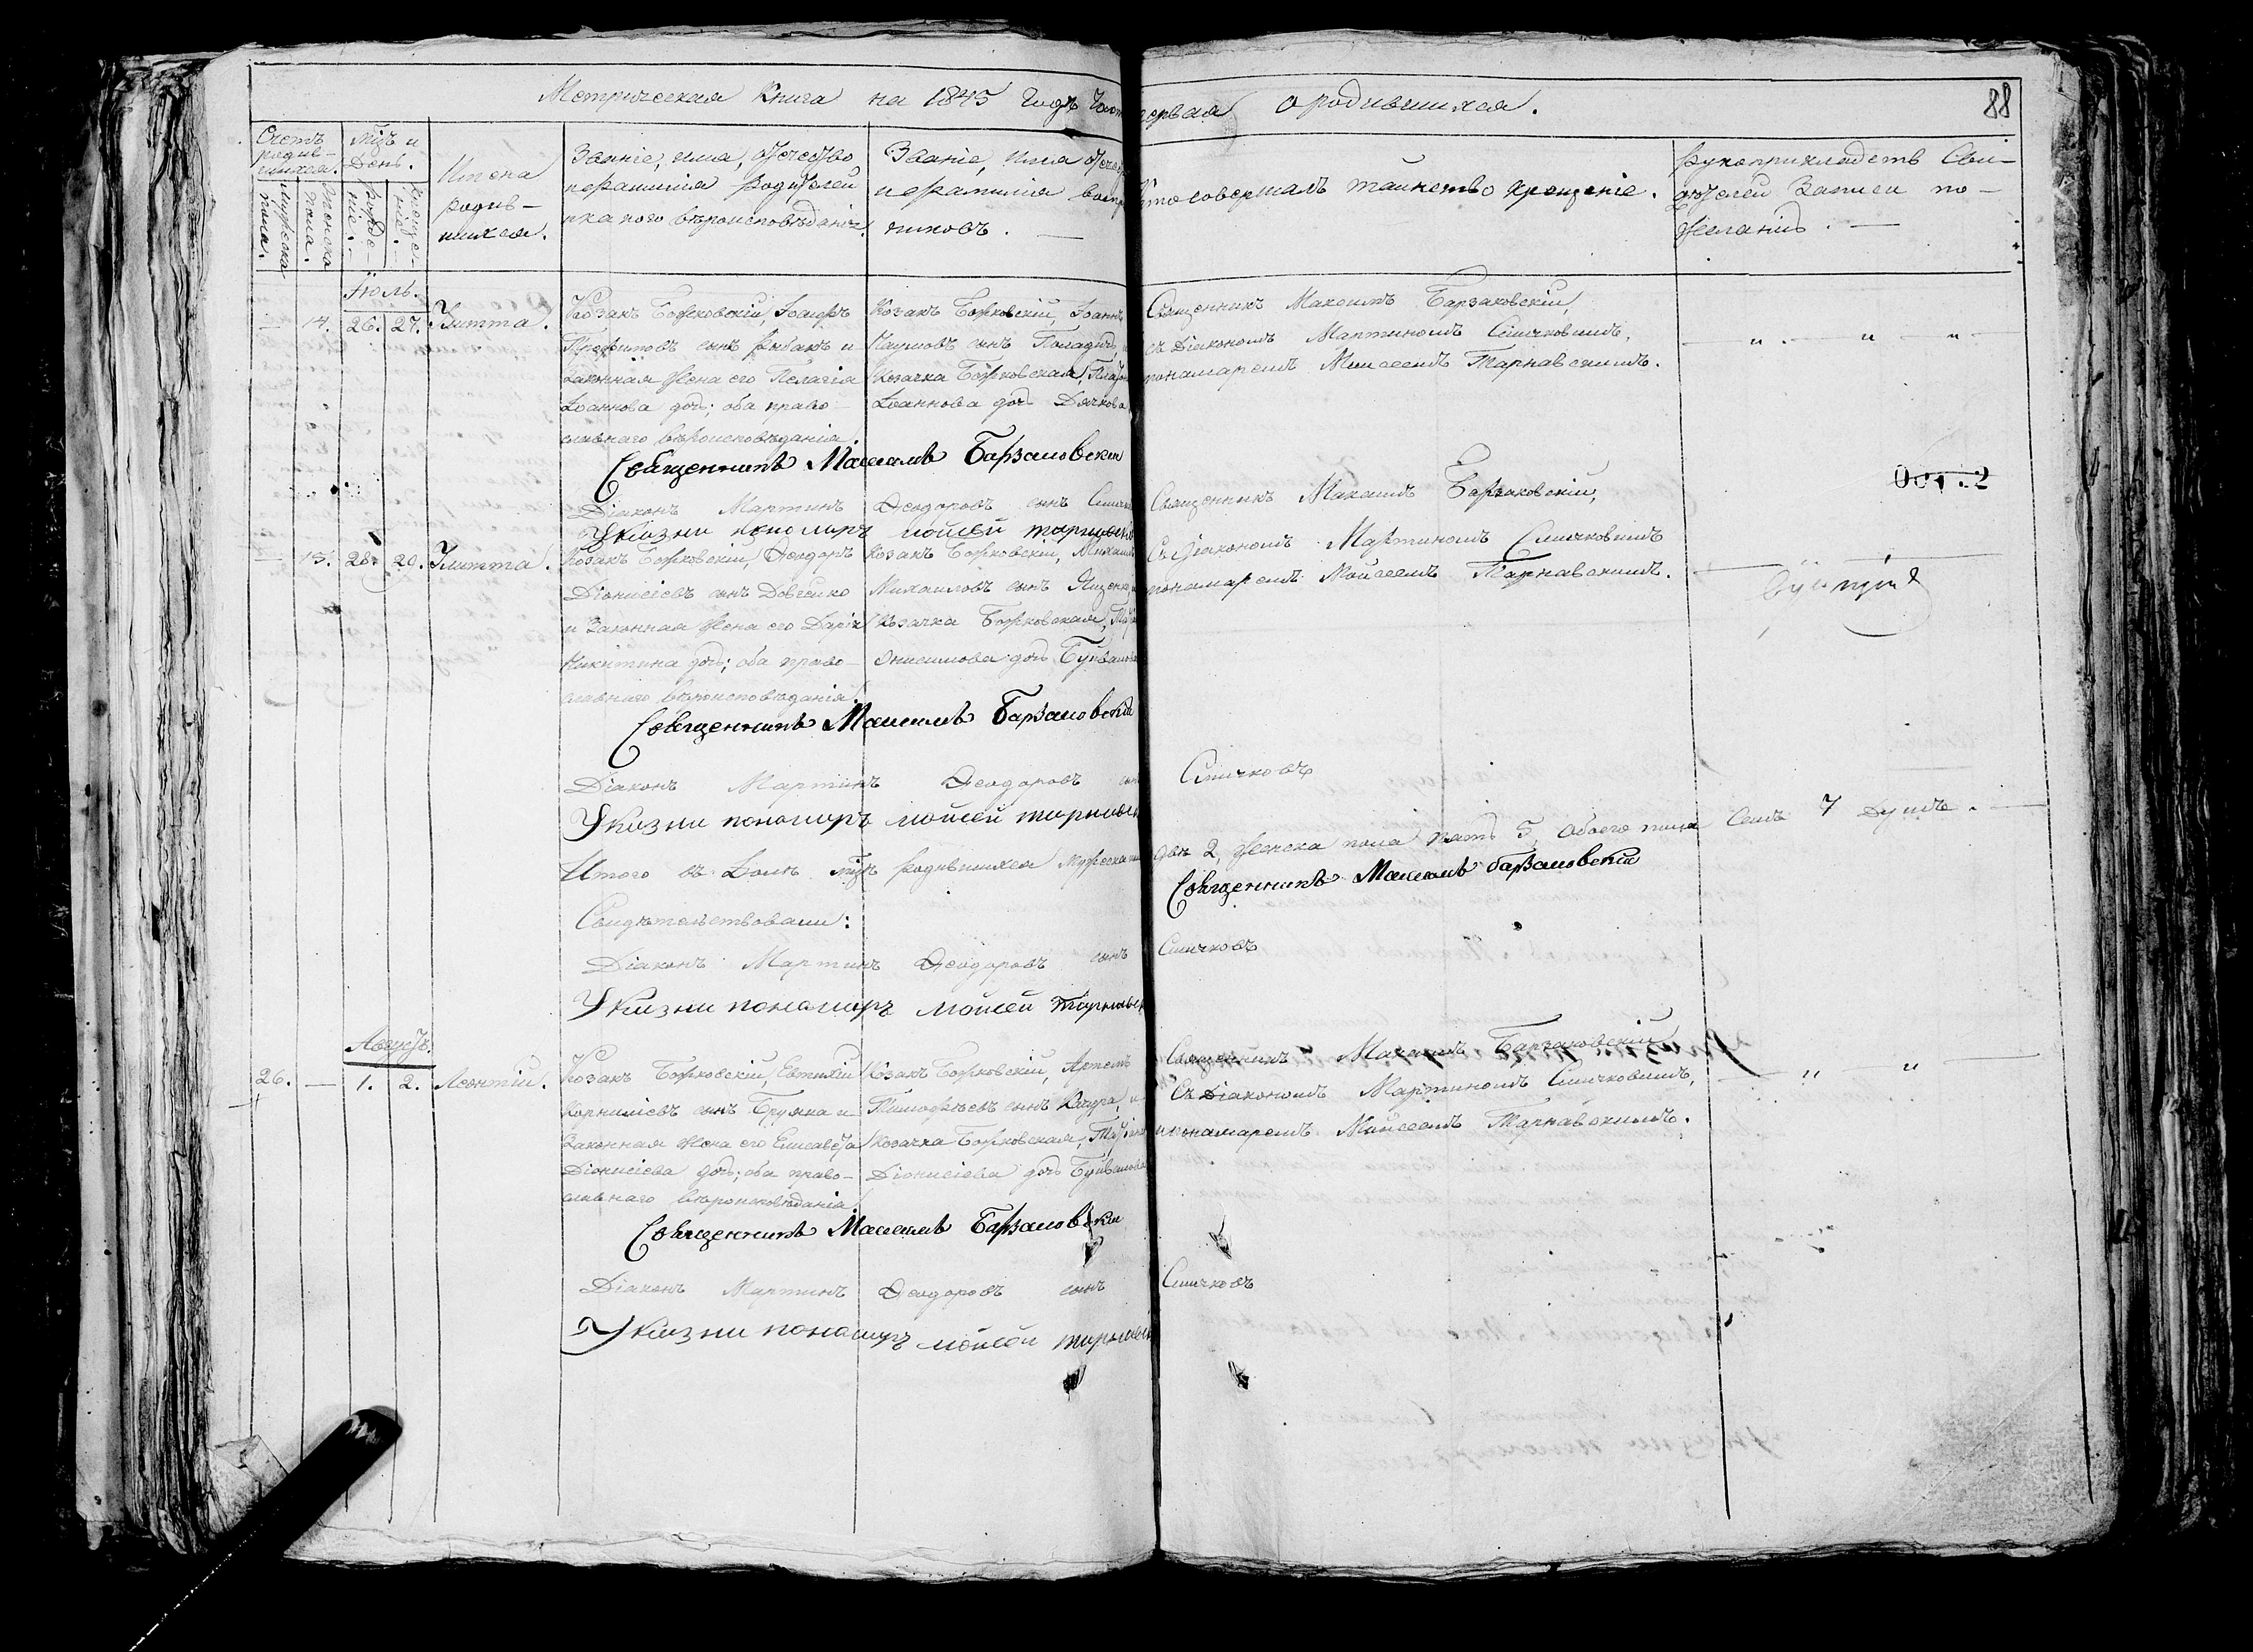 Метрическая Книга на 1845 Годъ Часть первая о родившихся.
88
Счетъ родив-шихся.
Мужеска пола.
Женска пола.
Мѣсъ и День.
Рожде-ніе.
Креще-ніе.
Имена родив-шихся.
Званіе, имя, отчество
и фамилія родителей
и какого вѣроисповѣданія.
Званіе, имя отчес
и фамилія воспр
никовъ.
Кто совершалъ таинство крещеніе.
Рукоприкладств Сви-
дѣтелей Записи по-
Желанію.
Іюль.
— 14. 26. 27. Улитта.
Козакъ Божковскій, Іосифъ
Трофимовъ сынъ Рыбакъ и
Законная Жена его Пелагія
Іоаннова дочь; оба право-
славнаго вѣроисповѣданія.
Козакъ Божковскій, Іоаннъ
Наумовъ сынъ
Козачка Божковская,
Іоаннова дочь Дячкова
Священникъ Максимъ Барзаковскій,
съ Діакономъ Мартиномъ Смичковымъ,
пономаремъ Моисеемъ Тарнавскимъ.
— „ — „ — „
Священникъ Максимъ Барзаковскій
Діаконъ Мартинъ Ѳеодоровъ сынъ Смичков
Указни пономарь Мойсей Тарнавск
— 15. 28. 29. Улитта.
Козакъ Божковскій, Ѳеодоръ
Діонисіевъ сынъ Довгенко
и Законная Жена его Дарія
Никитина дочь; оба право-
славнаго вѣроисповѣданія.
Козакъ Божковскій, Михаилъ
Михаиловъ сынъ Яценко
Козачка Божковская,
Онисимова дочь
Священникъ Максимъ Барзаковскій,
Съ Діакономъ Мартиномъ Смичковымъ
пономаремъ Мойсеемъ Тарнавскимъ.
Священникъ Максимъ Барзаковскій
Діаконъ Мартинъ Ѳеодоровъ сынъ Смичковъ
Указни пономарь Мойсей Тарнавск
Итого въ Іюлѣ мѣсѣ родившихся Мужеска пола два 2, Женска пола пять 5, Обоего пола Семь 7 Душъ.
Священникъ Максимъ Барзаковскій
Свидѣтельствовали:
Діаконъ Мартинъ Ѳеодоровъ сынъ Смичковъ
Указни пономарь Мойсей Тарнавск
Августъ.
26. — 1. 2. Леонтій.
Козакъ Божковскій, Евтихій
Корниліевъ сынъ Бружка и
Законная Жена его Елисавета
Діонисіева дочь; оба право-
славнаго вѣроисповѣданія.
Козакъ Божковскій, Артемъ
Тимофѣевъ сынъ Качура, и
Козачка Божковская, Татіана
Діонисіева дочь
Священникъ Максимъ Барзаковскій
Съ Діакономъ Мартиномъ Смичковымъ,
и пономаремъ Мойсеемъ Тарнавскимъ.
— „ — „
Священникъ Максимъ Барзаковскій
Діаконъ Мартинъ Ѳеодоровъ сынъ Смичковъ
Указни пономарь Мойсей Тарнавск